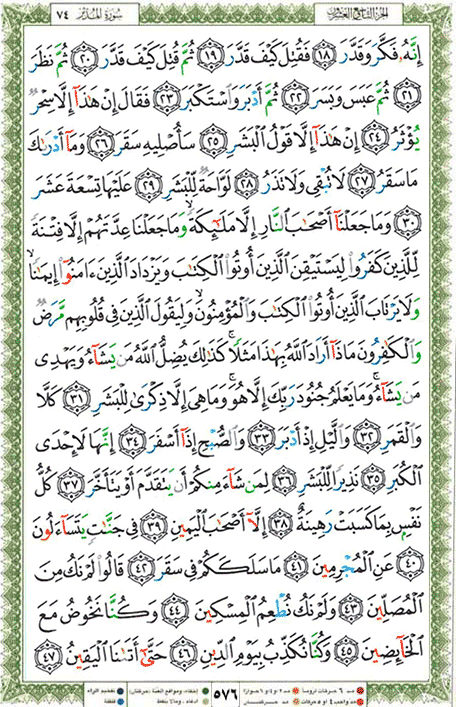 سورة المدثر ٧٤ الجزء التاسع والعشرون
إِنَّهُۥ فَكَّرَ وَقَدَّرَ ١٨ فَقُتِلَ كَيْفَ قَدَّرَ ١٩ ثُمَّ قُتِلَ كَيْفَ قَدَّرَ ٢٠ ثُمَّ نَظَرَ
٢١ ثُمَّ عَبَسَ وَبَسَرَ ٢٢ ثُمَّ أَدْبَرَ وَٱسْتَكْبَرَ ٢٣ فَقَالَ إِنْ هَٰذَآ إِلَّا سِحْرٌ
يُؤْثَرُ ٢٤ إِنْ هَٰذَآ إِلَّا قَوْلُ ٱلْبَشَرِ ٢٥ سَأُصْلِيهِ سَقَرَ ٢٦ وَمَآ أَدْرَىٰكَ
مَا سَقَرُ ٢٧ لَا تُبْقِى وَلَا تَذَرُ ٢٨ لَوَّاحَةٌ لِّلْبَشَرِ ٢٩ عَلَيْهَا تِسْعَةَ عَشَرَ
٣٠ وَمَا جَعَلْنَآ أَصْحَٰبَ ٱلنَّارِ إِلَّا مَلَٰٓئِكَةً ۙ وَمَا جَعَلْنَا عِدَّتَهُمْ إِلَّا فِتْنَةً
لِّلَّذِينَ كَفَرُوا۟ لِيَسْتَيْقِنَ ٱلَّذِينَ أُوتُوا۟ ٱلْكِتَٰبَ وَيَزْدَادَ ٱلَّذِينَ ءَامَنُوٓا۟ إِيمَٰنًا ۙ
وَلَا يَرْتَابَ ٱلَّذِينَ أُوتُوا۟ ٱلْكِتَٰبَ وَٱلْمُؤْمِنُونَ ۙ وَلِيَقُولَ ٱلَّذِينَ فِى قُلُوبِهِم مَّرَضٌ
وَٱلْكَٰفِرُونَ مَاذَآ أَرَادَ ٱللَّهُ بِهَٰذَا مَثَلًا ۚ كَذَٰلِكَ يُضِلُّ ٱللَّهُ مَن يَشَآءُ وَيَهْدِى
مَن يَشَآءُ ۚ وَمَا يَعْلَمُ جُنُودَ رَبِّكَ إِلَّا هُوَ ۚ وَمَا هِىَ إِلَّا ذِكْرَىٰ لِلْبَشَرِ ٣١ كَلَّا
وَٱلْقَمَرِ ٣٢ وَٱلَّيْلِ إِذْ أَدْبَرَ ٣٣ وَٱلصُّبْحِ إِذَآ أَسْفَرَ ٣٤ إِنَّهَا لَإِحْدَى
ٱلْكُبَرِ ٣٥ نَذِيرًا لِّلْبَشَرِ ٣٦ لِمَن شَآءَ مِنكُمْ أَن يَتَقَدَّمَ أَوْ يَتَأَخَّرَ ٣٧ كُلُّ
نَفْسٍۭ بِمَا كَسَبَتْ رَهِينَةٌ ٣٨ إِلَّآ أَصْحَٰبَ ٱلْيَمِينِ ٣٩ فِى جَنَّٰتٍ يَتَسَآءَلُونَ
٤٠ عَنِ ٱلْمُجْرِمِينَ ٤١ مَا سَلَكَكُمْ فِى سَقَرَ ٤٢ قَالُوا۟ لَمْ نَكُ مِنَ
ٱلْمُصَلِّينَ ٤٣ وَلَمْ نَكُ نُطْعِمُ ٱلْمِسْكِينَ ٤٤ وَكُنَّا نَخُوضُ مَعَ
ٱلْخَآئِضِينَ ٤٥ وَكُنَّا نُكَذِّبُ بِيَوْمِ ٱلدِّينِ ٤٦ حَتَّىٰٓ أَتَىٰنَا ٱلْيَقِينُ ٤٧
٥٧٦